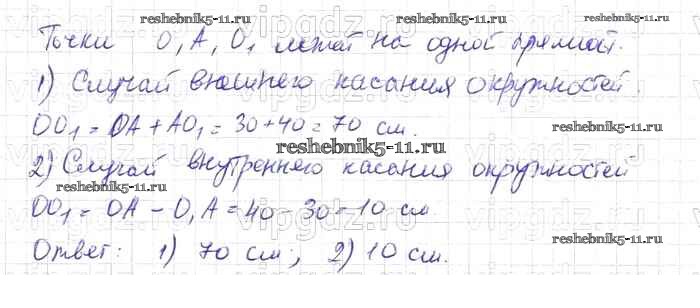 Точки O, A, O₁ лежат на одной прямой.
1) Случай внешнего касания окружностей.
OO₁ = OA + AO₁ = 30 + 40 = 70 см.
2) Случай внутреннего касания окружностей
OO₁ = OA - O₁A = 40 - 30 = 10 см
Ответ: 1) 70 см; 2) 10 см.
reshebnik5-11.ru
reshebnik5-11.ru
reshebnik5-11.ru
reshebnik5-11.ru
reshebnik5-11.ru
reshebnik5-11.ru
vipgdz.ru